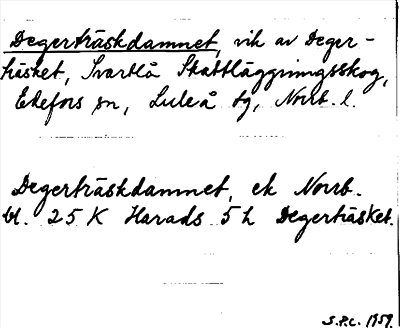 Degerträskdamnet, vik av Deger-
träsket, Svartlå Skattläggningsskog,
Edefors sn, Luleå tg, Norrb. l.
Degerträskdamnet, ek Norrb.
bl. 25 K Harads 5h Degerträsket.
S.P.C. 1959.